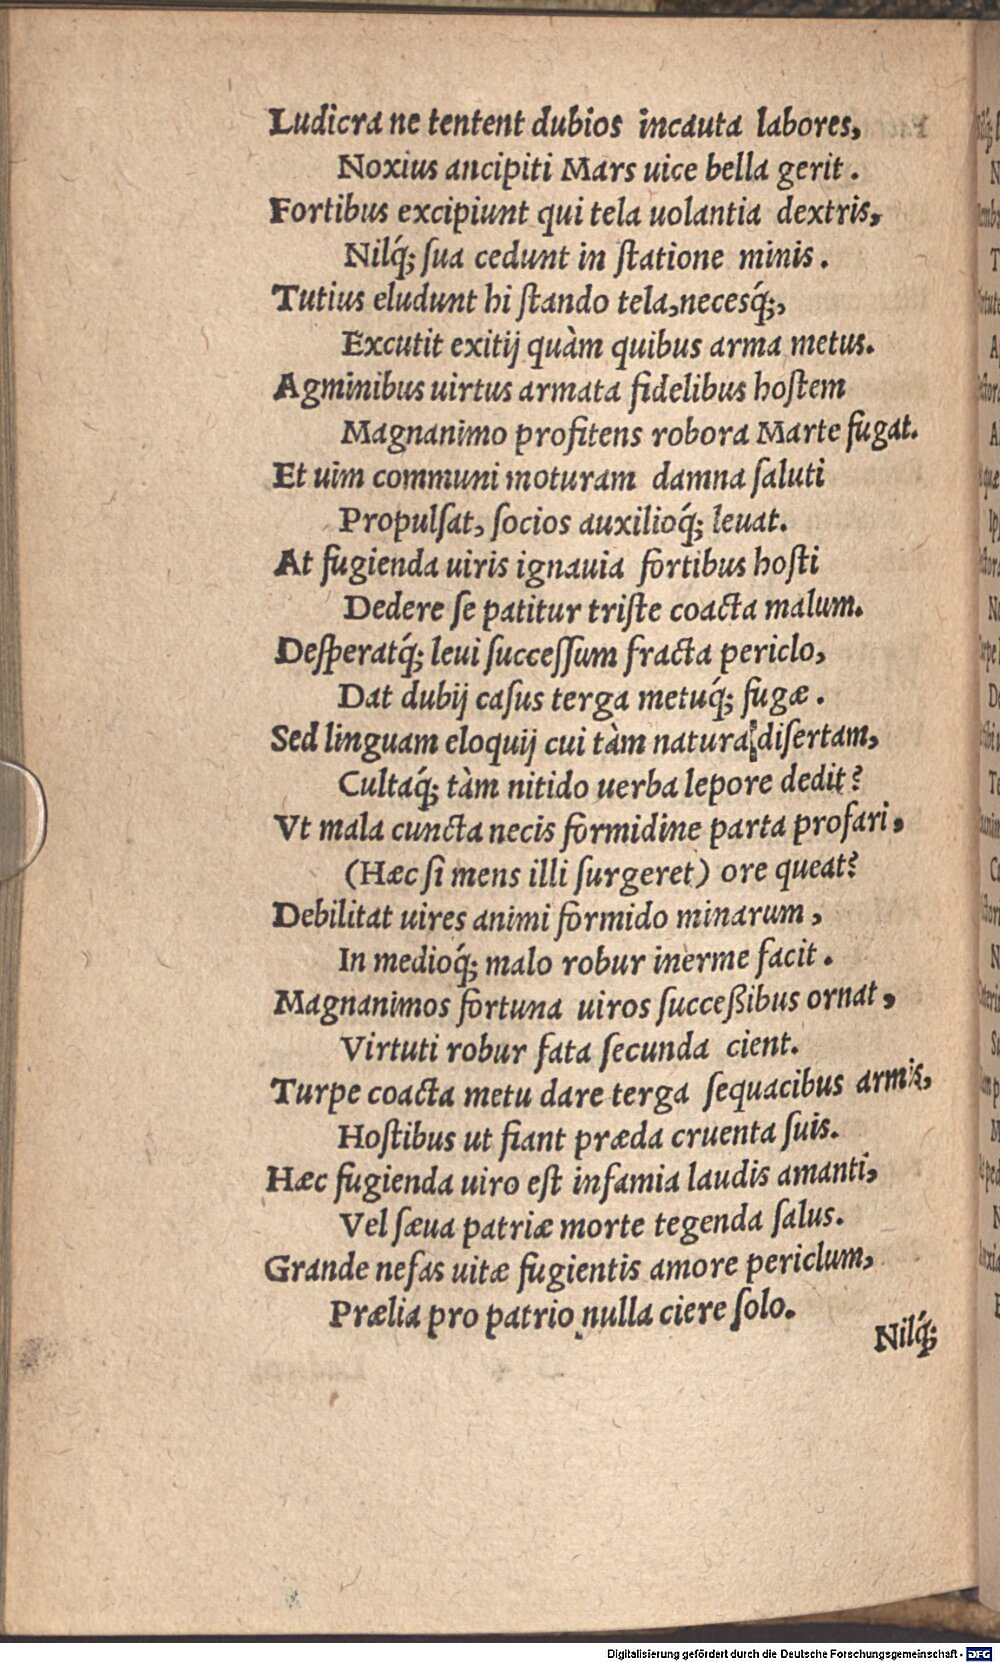 Ludicra ne tentent dubios incauta labores,
Noxius ancipiti Mars uice bella gerit.
Fortibus excipiunt qui tela uolantia dextris,
Nilq́; ſua cedunt in ſtatione minis.
Tutius eludunt hi ſtando tela, necesq́;,
Excutit exitij quàm quibus arma metus.
Agminibus uirtus armata fidelibus hoſtem
Magnanimo profitens robora Marte fugat.
Et uim communi moturam damna ſaluti
Propulſat, ſocios auxilioq́; leuat.
At fugienda uiris ignauia fortibus hoſti
Dedere ſe patitur triſte coacta malum.
Deſperatq́; leui ſucceſſum fracta periclo,
Dat dubij caſus terga metuq́; fugæ.
Sed linguam eloquij cui tàm natura diſertam,
Cultaq́; tàm nitido uerba lepore dedit?
Vt mala cuncta necis formidine parta profari,
(Hæc ſi mens illi ſurgeret) ore queat?
Debilitat uires animi formido minarum,
In medioq́; malo robur inerme facit.
Magnanimos fortuna uiros ſucceßibus ornat,
Virtuti robur fata ſecunda cient.
Turpe coacta metu dare terga ſequacibus armis,
Hoſtibus ut fiant præda cruenta ſuis.
Hæc fugienda uiro eſt infamia laudis amanti,
Vel ſæua patriæ morte tegenda ſalus.
Grande nefas uitæ fugientis amore periclum,
Prælia pro patrio nulla ciere ſolo.
Nilq́;
Digitalisierung gefördert durch die Deutsche Forschungsgemeinschaft - DFG